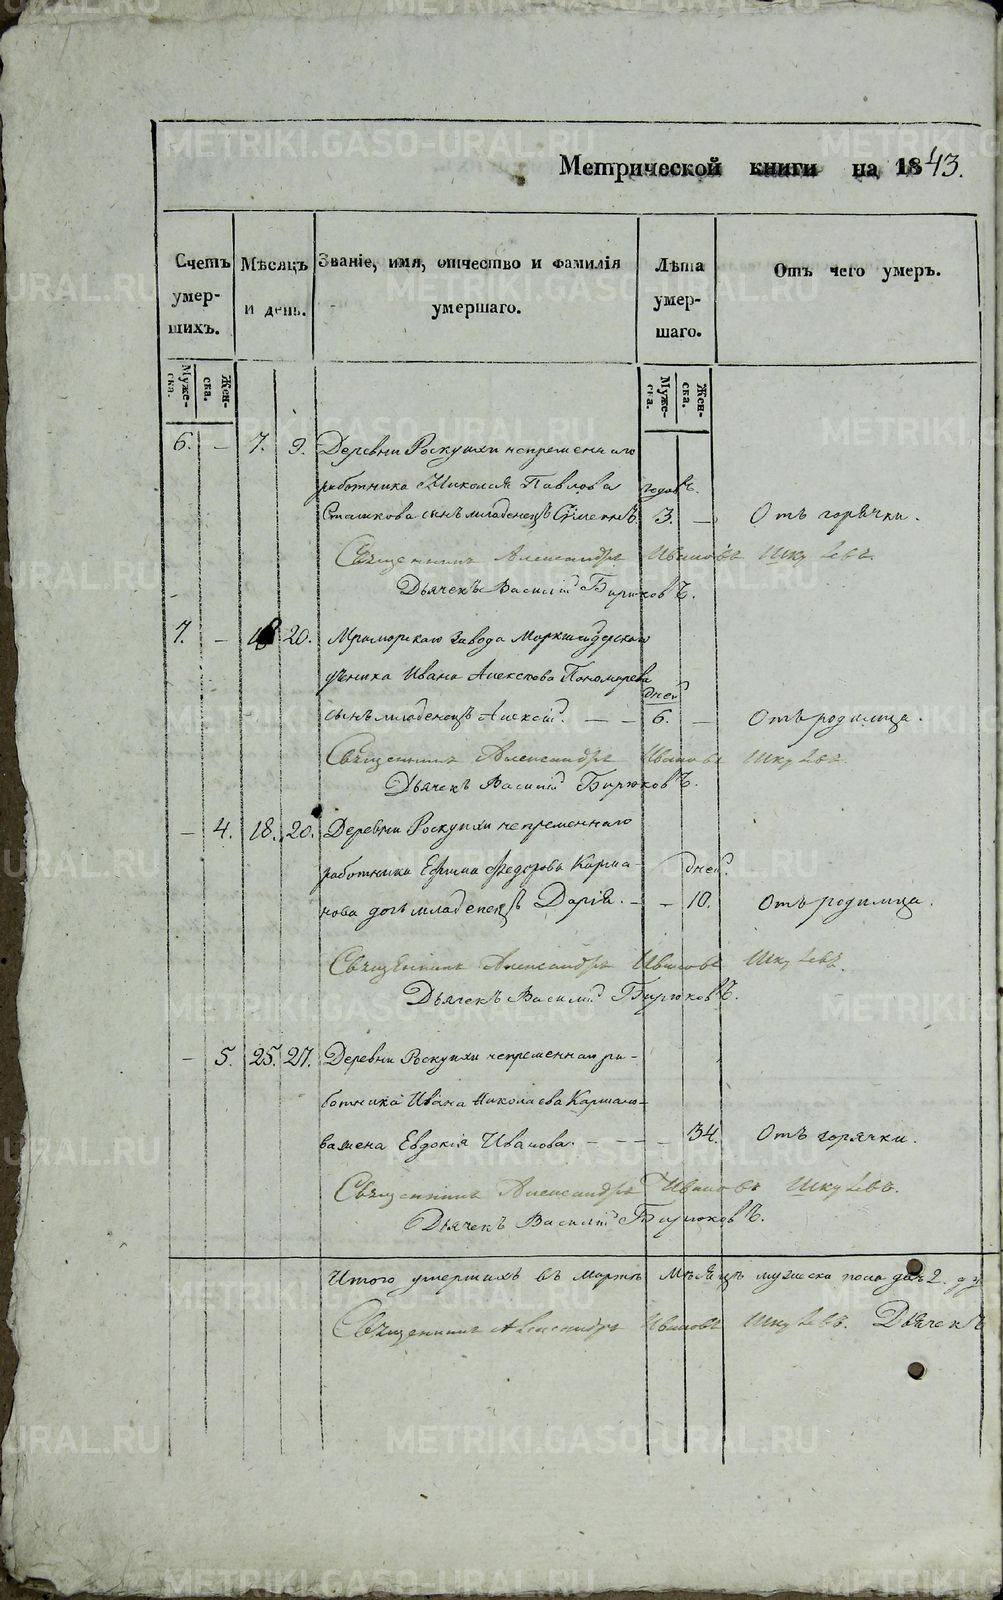 Метрической книги на 1843.
Счетъ умер-шихъ.
Мѣсяцъ и день.
Званіе, имя, отчество и фамилія умершаго.
Лѣта умер-шаго.
Отъ чего умеръ.
Муже-ска. Жен-ска.
Муже-ска. Жен-ска.
6. – 7. 9. Деревни Роскуихи непременнаго
работника Николая Павлова годовъ.
Сташкова сынъ младенецъ Сѵмеонъ 3. – Отъ горячки.
Священникъ Александръ Ивановъ
Дьячекъ Василій Бирюковъ.
7. – 18 20. Мраморскаго завода Маркшейдерскаго
ученика Ивана Алексѣева Пономарева дней
сынъ младенецъ Алексій. – – 6. – Отъ родимца.
Священникъ Александръ Ивановъ
Дьячекъ Василій Бирюковъ.
– 4. 18. 20. Деревни Роскуихи непременнаго
работника Ефима Федорова Карма- дней.
нова дочь младенецъ Дарія. – – 10. Отъ родимца.
Священникъ Александръ Ивановъ
Дьячекъ Василій Бирюковъ.
– 5. 25. 27. Деревни Роскуихи непременнаго ра-
ботника Ивана Николаева Кармано-
ва жена Евдокія Иванова. – – – – 34. Отъ горячки.
Священникъ Александръ Ивановъ
Дьячекъ Василій Бирюковъ.
Итого умершихъ въ Мартѣ Мѣсяцѣ мужеска пола два 2.
Священникъ Александръ Ивановъ Дьячекъ
METRIKI.GASO-URAL.RU